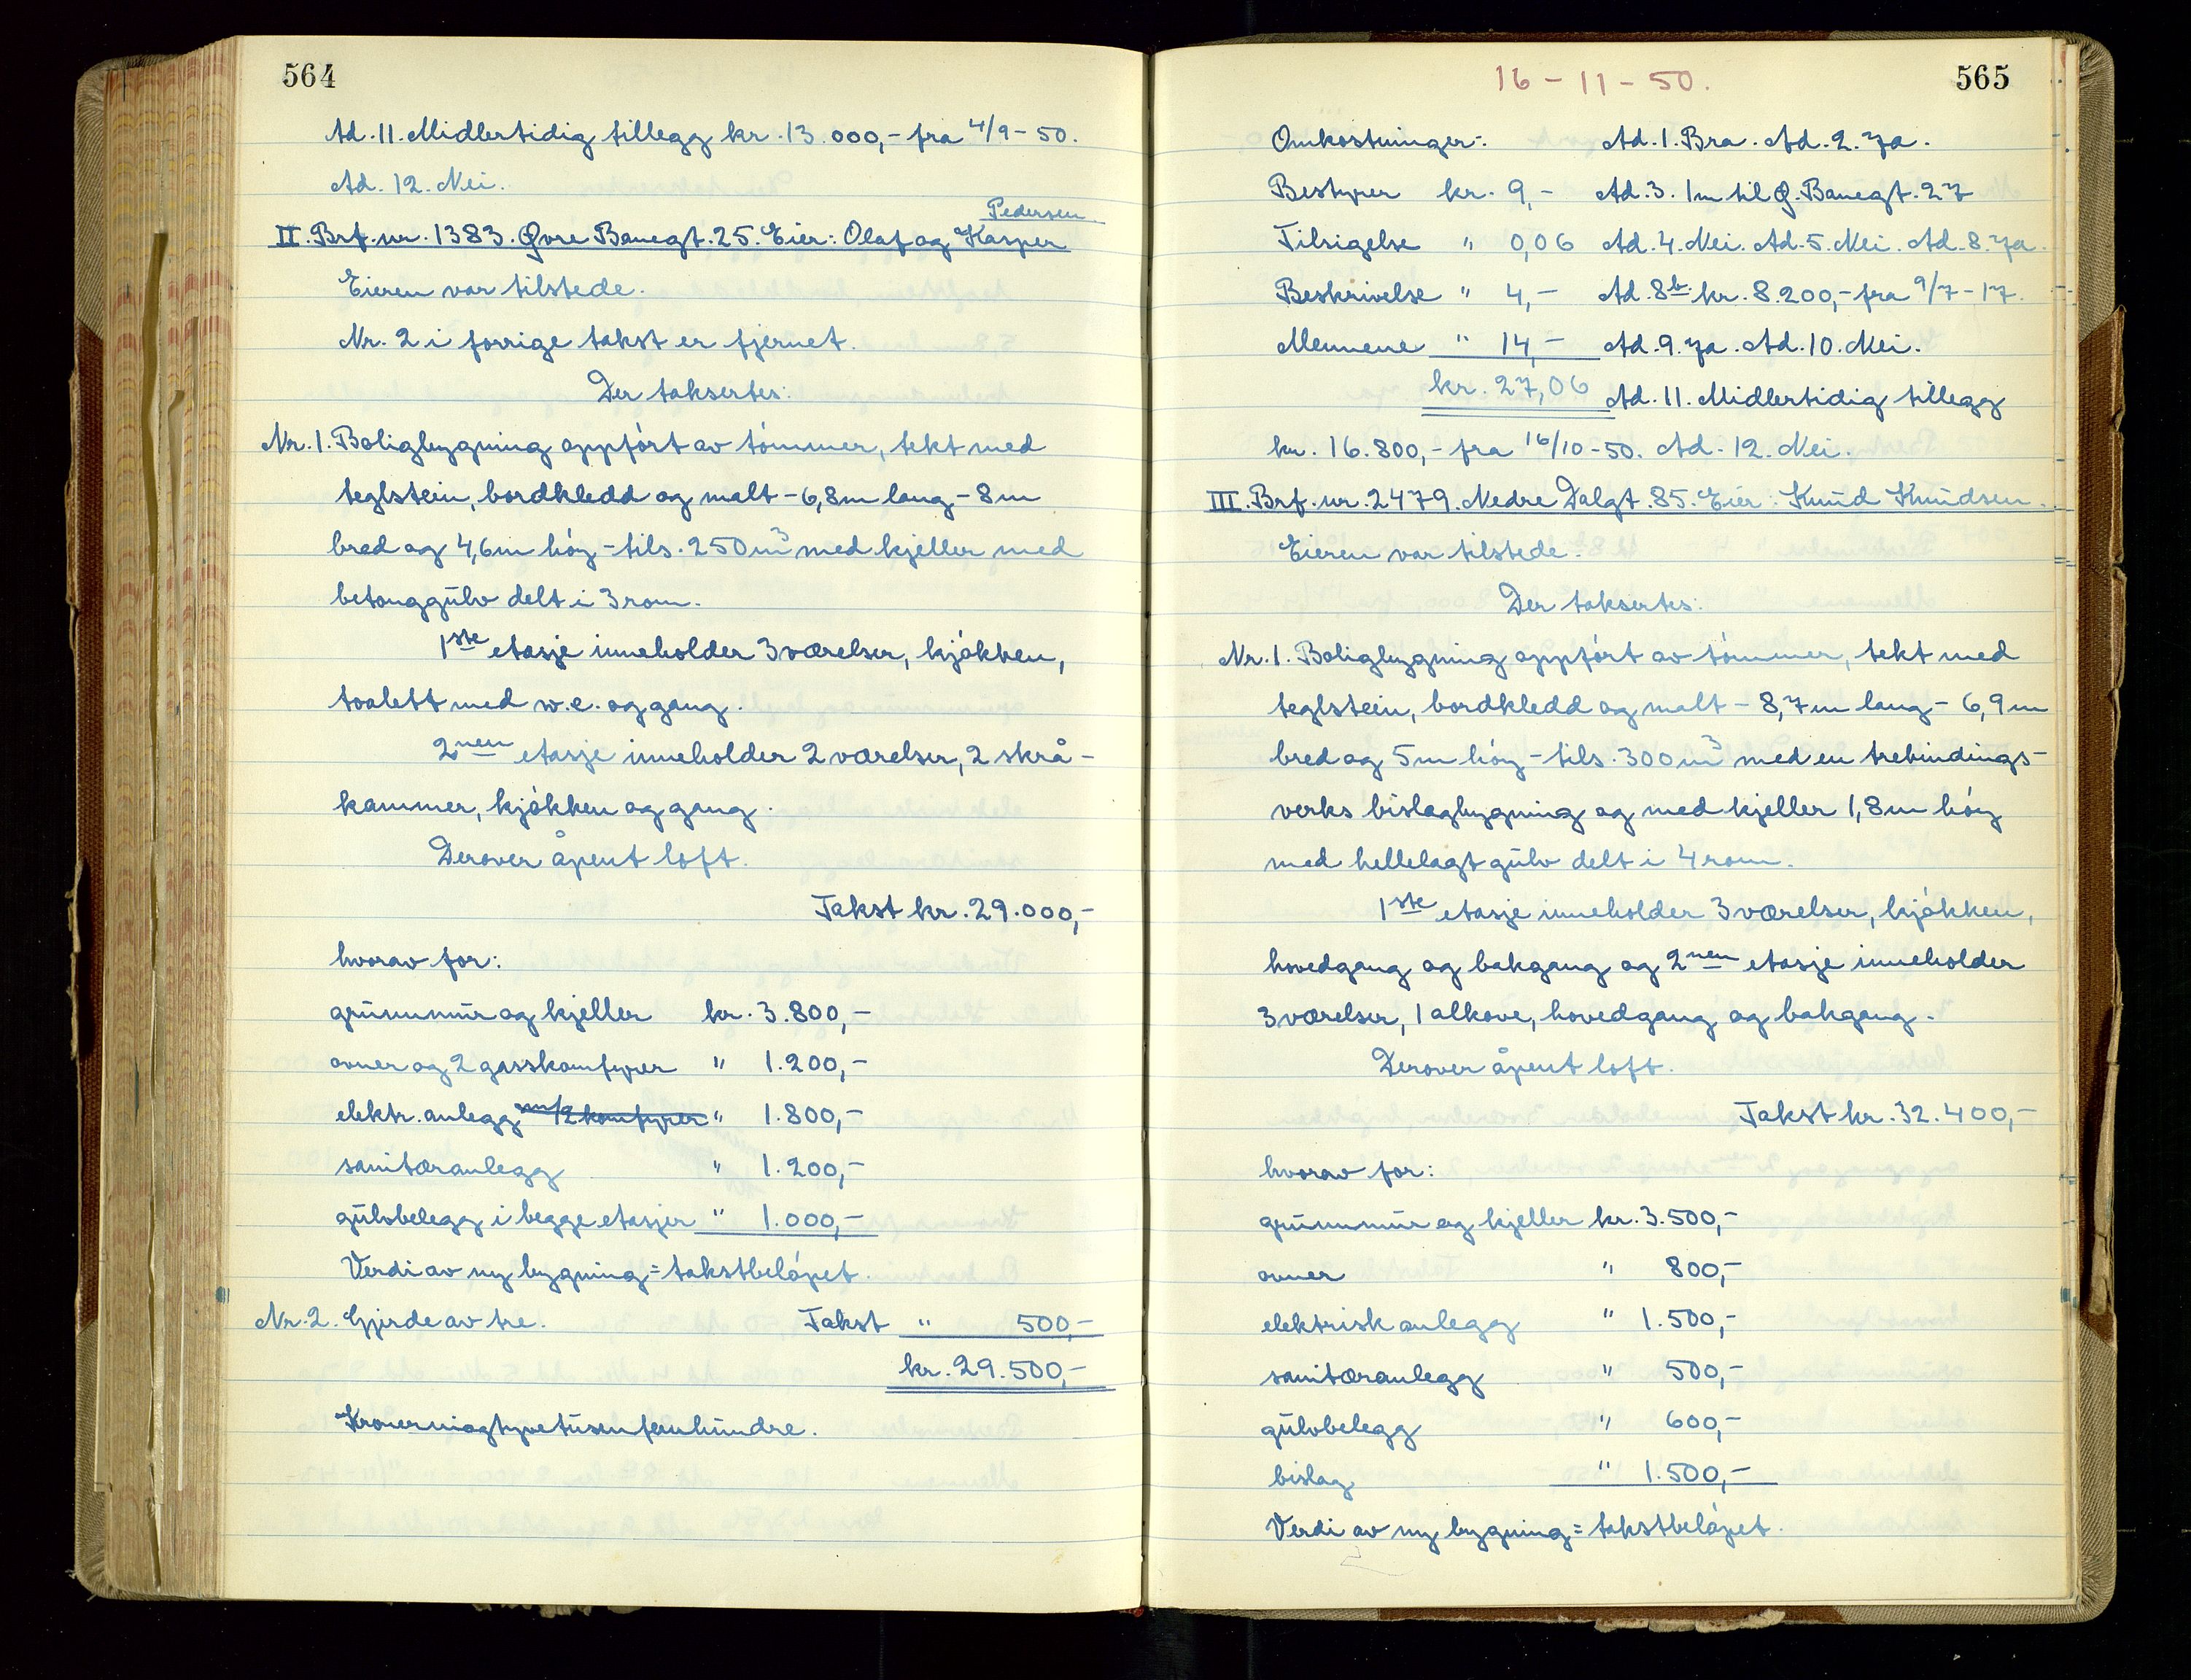 564
Ad. 11. Midlertidig tillegg kr. 13.000,- fra 4/9-50.
Ad. 12. Nei.
Pedersen
II. Brf. nr. 1383. Øvre Banegt. 25. Eier: Olaf og Kasper
Eieren var tilstede.
Nr. 2 i forrige takst er fjernet.
Der taksertes:
Nr. 1. Boligbygning oppført av tømmer, tekt med
teglstein, bordkledd og malt - 6,8 m lang - 8 m
bred og 4,6 m høy - tils. 250 m³ med kjeller med
betonggulv delt i 3 rom.
1ste etasje inneholder 3 værelser, kjøkken,
toalett med w.c. og gang.
2nen etasje inneholder 2 værelser, 2 skrå-
kammer, kjøkken og gang.
Derover åpent loft.
Takst kr. 29.000,-
hvorav for:
grunnmur og kjeller kr. 3.800,-
ovner og 2 gasskomfyrer " 1.200,-
elektr. anlegg m/2 komfyrer " 1.800,-
sanitæranlegg " 1.200,-
gulvbelegg i begge etasjer " 1.000,-
Verdi av ny bygning = takstbeløpet.
Nr. 2. Gjerde av tre. Takst " 500,-
kr. 29.500,-
Kronerniogtyvetusenfemhundre.
16-11-50.
565
Omkostninger: Ad. 1. Bra. Ad. 2. Ja.
Bestyrer kr. 9,- Ad. 3. 1m til Ø. Banegt. 27
Tilsigelse " 0,06 Ad. 4. Nei. Ad. 5. Nei. Ad. 8. Ja.
Beskrivelse " 4,- Ad. 8b. kr. 8.200,- fra 9/7-17.
Mennene " 14,- Ad. 9. Ja. Ad. 10. Nei.
kr. 27,06 Ad. 11. Midlertidig tillegg
kr. 16.800,- fra 16/10-50. Ad. 12. Nei.
III. Brf. nr. 2479. Nedre Dalgt. 85. Eier: Knud Knudsen.
Eieren var tilstede.
Der taksertes:
Nr. 1. Boligbygning oppført av tømmer, tekt med
teglstein, bordkledd og malt - 8,7 m lang - 6,9 m
bred og 5 m høy - tils. 300 m³ med en trebindings-
verks bislagbygning og med kjeller 1,8 m høy
med hellelagt gulv delt i 4 rom.
1ste etasje inneholder 3 værelser, kjøkken,
hovedgang og bakgang og 2nen etasje inneholder
3 værelser, 1 alkove, hovedgang og bakgang.
Derover åpent loft.
Takst kr. 32.400,-
hvorav for:
grunnmur og kjeller kr. 3.500,-
ovner " 800,-
elektrisk anlegg " 1.500,-
sanitæranlegg " 500,-
gulvbelegg " 600,-
bislag " 1.500,-
Verdi av ny bygning = takstbeløpet.